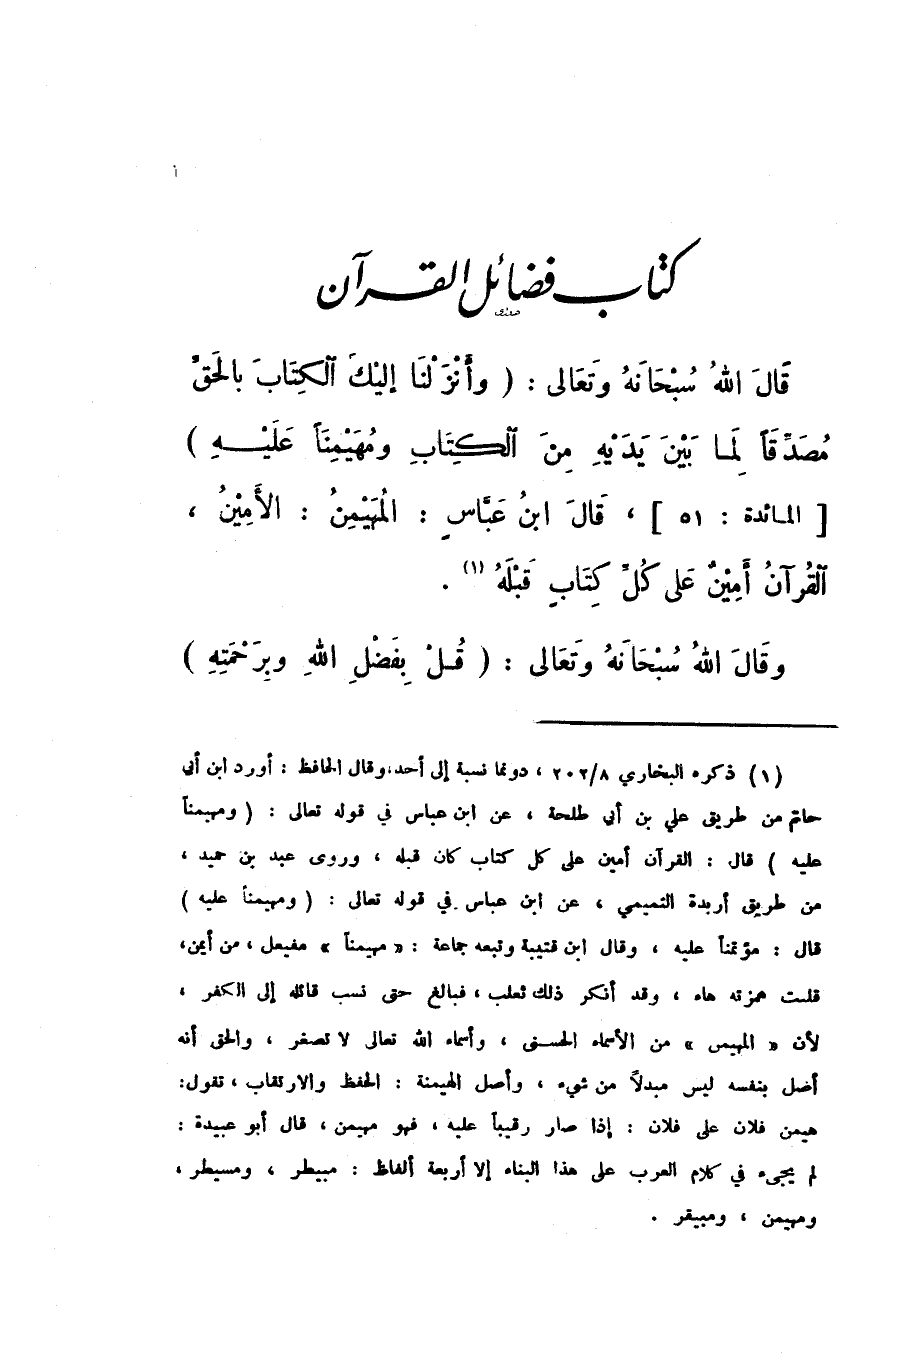 كتاب فضائل القرآن
قَالَ اللهُ سُبْحَانَهُ وتَعَالى : ( وأَنْزَلْنَا إليْكَ ٱلْكِتَابَ بالحَقِّ
مُصَدِّقَاً لِمَا بَيْنَ يَدَيْهِ مِنَ ٱلْكِتَابِ ومُهَيْمِنَاً عَلَيْهِ )
[ المائدة : ٥١ ] ، قَالَ ابنُ عَبَّاسٍ : المُهَيْمِنُ : الأَمِيْنُ ،
ٱلقُرآنُ أَمِيْنٌ عَلى كُلِّ كِتَابٍ قَبْلَهُ (١) .
وقَالَ اللهُ سُبْحَانَهُ وتَعَالى : ( قُلْ بِفَضْلِ اللهِ وبِرَحْمَتِهِ )
(١) ذكره البخاري ٢٠٢/٨ ، دونما نسبة إلى أحد، وقال الحافظ : أورد ابن أبي
حاتم من طريق علي بن أبي طلحة ، عن ابن عباس في قوله تعالى : ( ومهيمناً
عليه ) قال : القرآن أمين على كل كتاب كان قبله ، وروى عبد بن حميد ،
من طريق أربدة التميمي ، عن ابن عباس في قوله تعالى : ( ومهيمناً عليه )
قال : مؤتمناً عليه ، وقال ابن قتيبة وتبعه جماعة : « مهيمناً » مفيعل ، من أيمن،
قلبت همزته هاء ، وقد أنكر ذلك ثعلب ، فبالغ حتى نسب قائله إلى الكفر ،
لأن « المهيمن » من الأسماء الحسنى ، وأسماء الله تعالى لا تصغر ، والحق أنه
أصل بنفسه ليس مبدلاً من شيء ، وأصل الهيمنة : الحفظ والارتقاب ، تقول:
هيمن فلان على فلان : إذا صار رقيباً عليه ، فهو مهيمن ، قال أبو عبيدة :
لم يجىء في كلام العرب على هذا البناء إلا أربعة ألفاظ : مبيطر ، ومسيطر ،
ومهيمن ، ومبيقر .